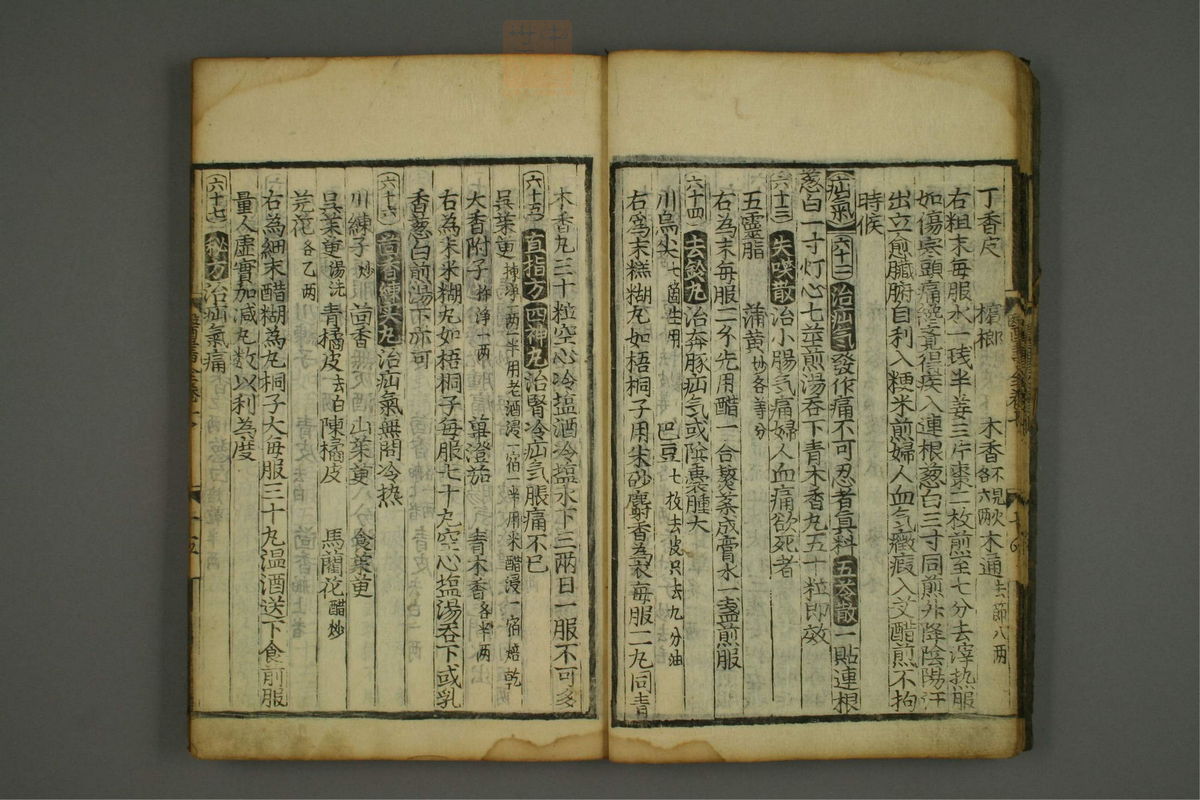 丁香皮 檳榔 木香不見火各六兩 木通去節八兩
右粗末每服水一琖半姜三片棗二枚煎至七分去滓热服
如傷寒頭痛纔覺得疾入連根葱白三寸同煎升降陰陽汗
出立愈臟腑自利入粳米煎婦人血气癥瘕入艾醋煎不拘
時候
疝氣 六十二 治疝气發作痛不可忍者真料五苓散一貼連根
葱白一寸灯心七莖煎湯吞下青木香丸五十粒即效
六十三 失唉散治小腸气痛婦人血痛欲死者
五靈脂 蒲黄炒各等分
右為末每服二分先用醋一合熬藥成膏水一盞煎服
六十四 去鈴丸治奔豚疝气或陰囊腫大
川烏尖七箇生用 巴豆七枚去皮只去九分油
右為末糕糊丸如梧桐子用朱砂麝香為衣每服二丸同青
木香丸三十粒空心冷塩酒冷塩水下三兩日一服不可多
六十五 直指方四神丸治腎冷疝气脹痛不已
吳茱萸揀淨一兩半用老酒浸一宿一半用米醋浸一宿焙乾
大香附子杵淨一兩 蓽澄茄 青木香各半兩
右為末米糊丸如梧桐子每服七十丸空心塩湯吞下或乳
香葱白煎湯下亦可
六十六 茴香練实丸治疝氣無問冷热
川練子炒 茴香 山茱萸 食茱萸
吳茱萸湯洗 青橘皮去白 陳橘皮 馬藺花醋炒
芫花各乙兩
右為細末醋糊為丸桐子大每服三十丸温酒送下食前服
量人虛實加減丸數以利為度
六十七 秘方治疝氣痛